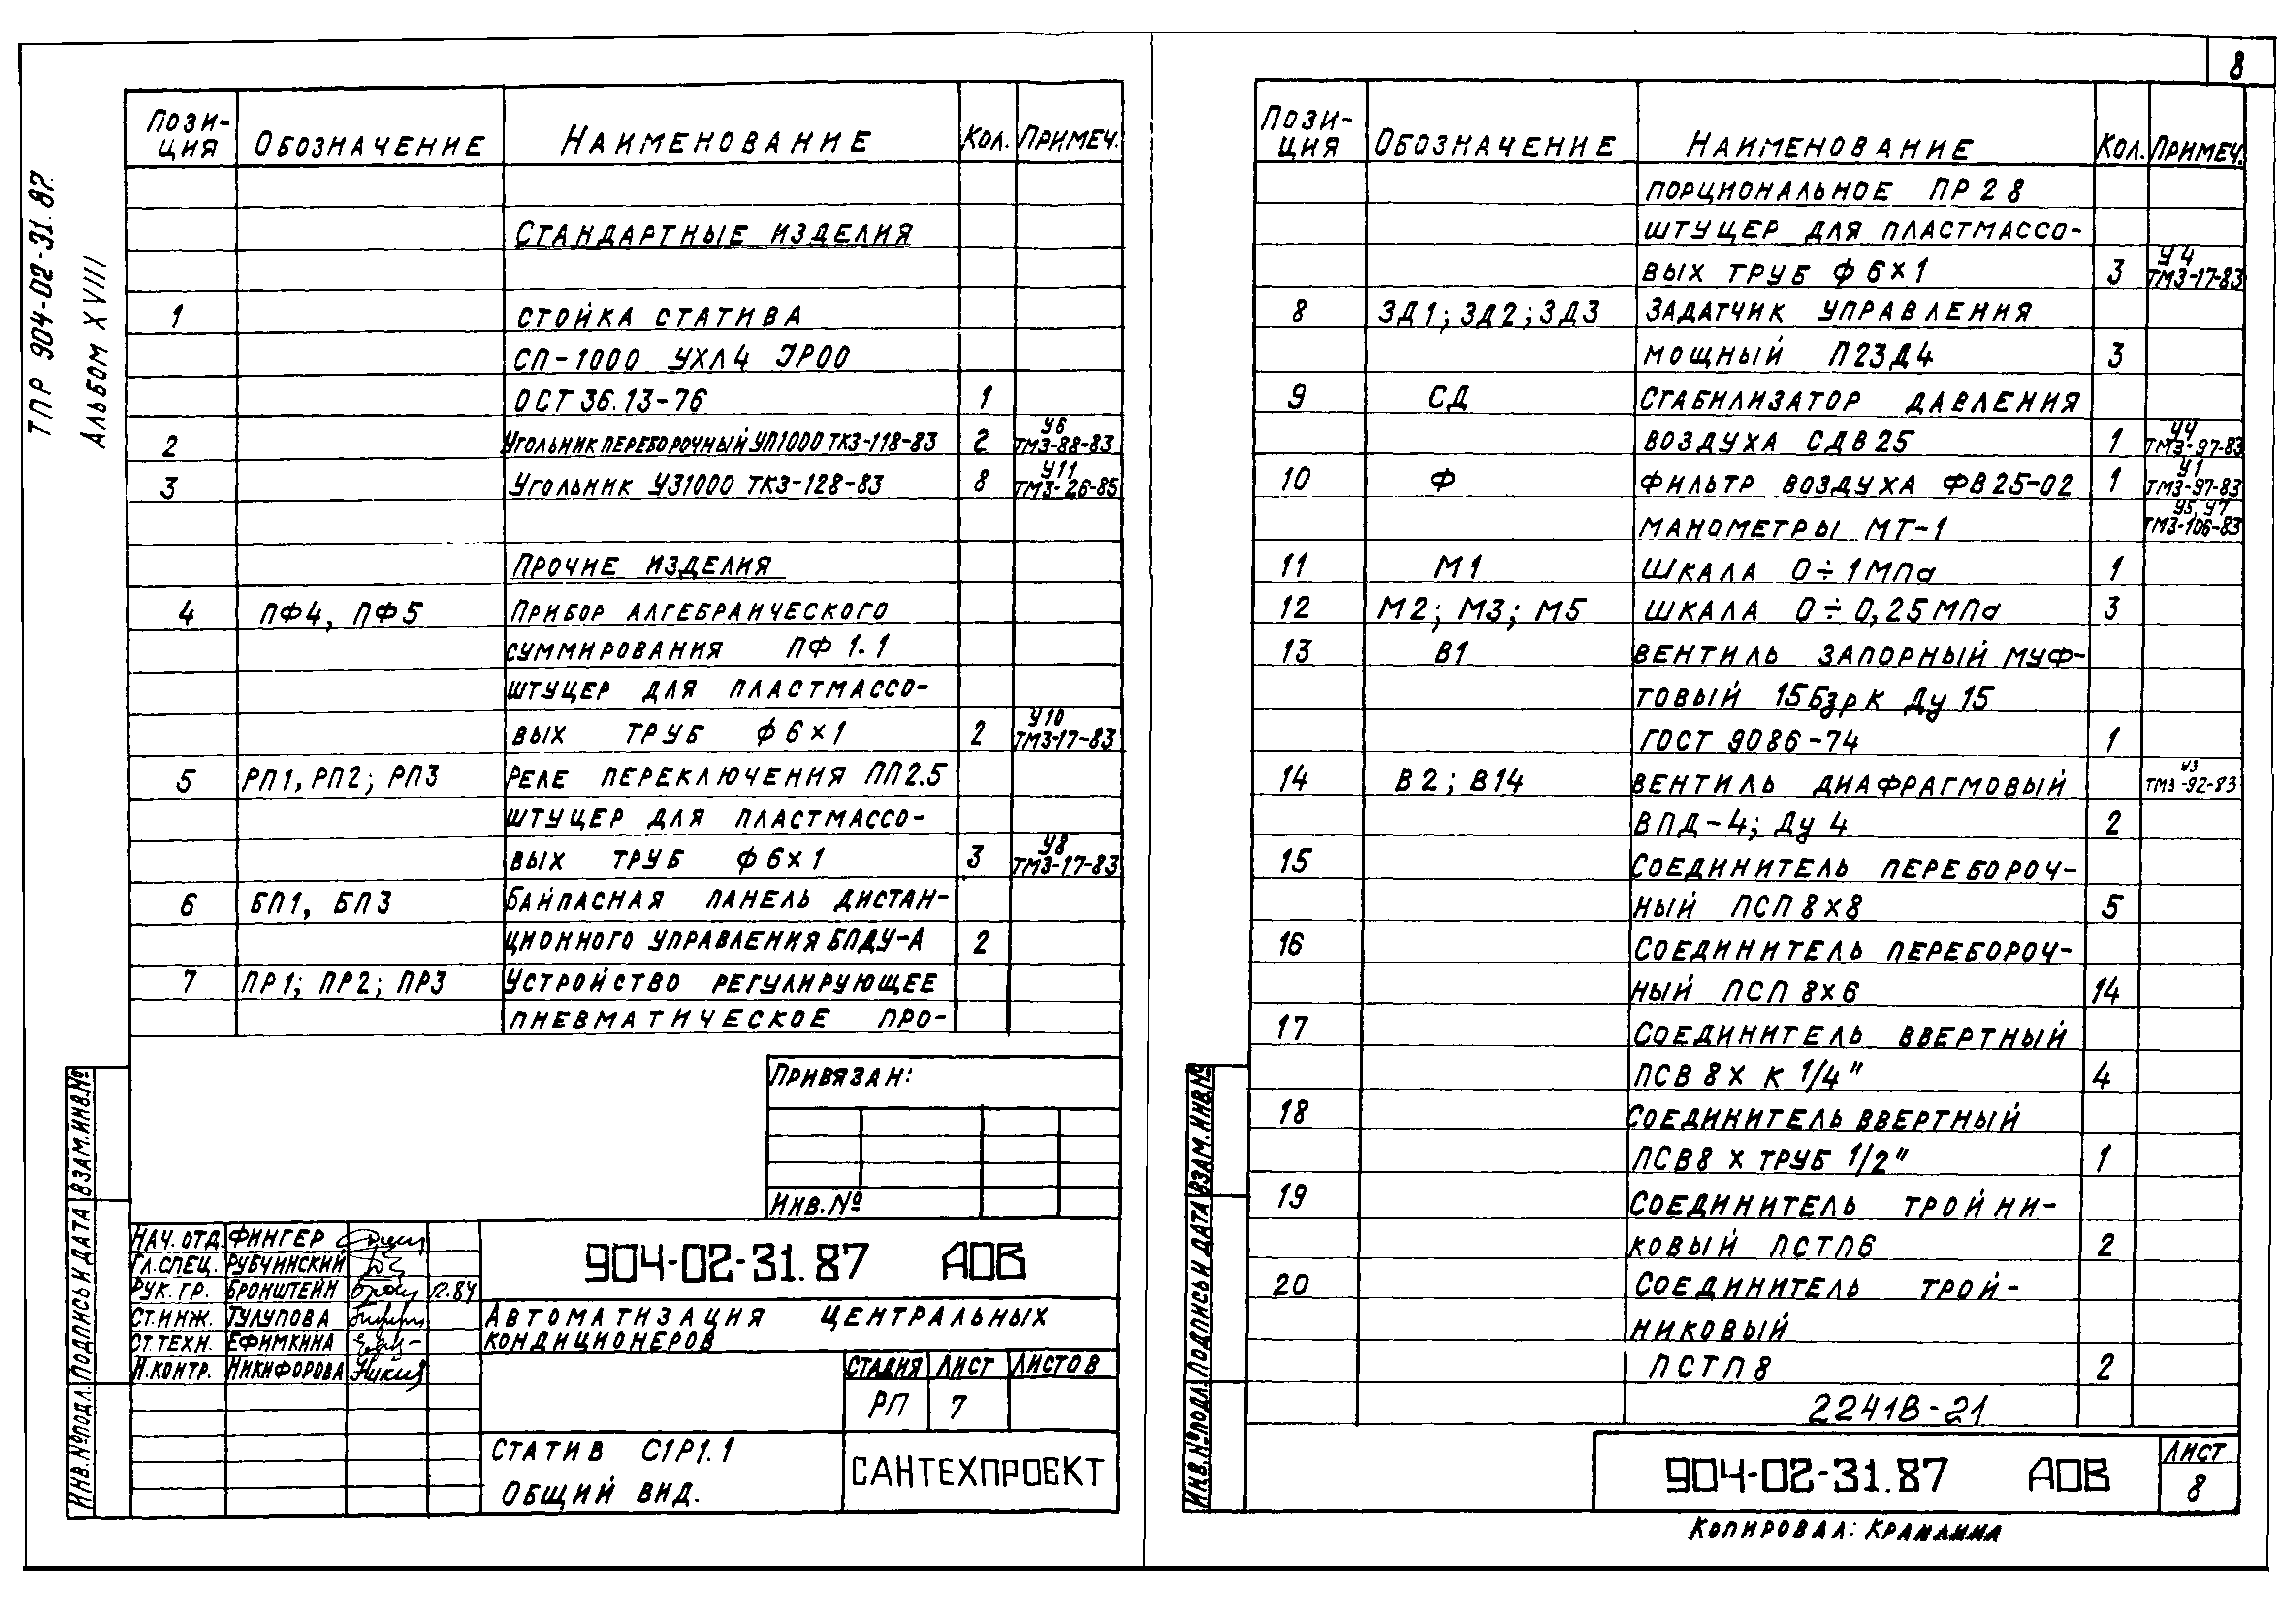 8
ТПР 904-02-31.87.
АЛЬБОМ XVIII
ПОЗИ-
ЦИЯ ОБОЗНАЧЕНИЕ НАИМЕНОВАНИЕ КОЛ. ПРИМЕЧ.
СТАНДАРТНЫЕ ИЗДЕЛИЯ
1 СТОЙКА СТАТИВА
СП-1000 УХЛ4 IP00
ОСТ 36.13-76 1
У6
2 УГОЛЬНИК ПЕРЕБОРОЧНЫЙ УП1000 ТК3-118-83 2 ТМ3-88-83
У11
3 УГОЛЬНИК У31000 ТК3-128-83 8 ТМ3-26-85
ПРОЧИЕ ИЗДЕЛИЯ
4 ПФ4, ПФ5 ПРИБОР АЛГЕБРАИЧЕСКОГО
СУММИРОВАНИЯ ПФ 1.1
ШТУЦЕР ДЛЯ ПЛАСТМАССО-
У10
ВЫХ ТРУБ Ф 6×1 2 ТМ3-17-83
5 РП1, РП2; РП3 РЕЛЕ ПЕРЕКЛЮЧЕНИЯ ПП2.5
ШТУЦЕР ДЛЯ ПЛАСТМАССО-
У8
ВЫХ ТРУБ Ф 6×1 3 ТМ3-17-83
6 БП1, БП3 БАЙПАСНАЯ ПАНЕЛЬ ДИСТАН-
ЦИОННОГО УПРАВЛЕНИЯ БПДУ-А 2
7 ПР1; ПР2; ПР3 УСТРОЙСТВО РЕГУЛИРУЮЩЕЕ
ПНЕВМАТИЧЕСКОЕ ПРО-
ПРИВЯЗАН:
ИНВ. №
НАЧ. ОТД. ФИНГЕР
ГЛ. СПЕЦ. РУБЧИНСКИЙ
РУК. ГР. БРОНШТЕЙН 12.84
СТ. ИНЖ. ТУЛУПОВА
СТ. ТЕХН. ЕФИМКИНА
Н. КОНТР. НИКИФОРОВА
904-02-31.87 АОВ
АВТОМАТИЗАЦИЯ ЦЕНТРАЛЬНЫХ
КОНДИЦИОНЕРОВ
СТАДИЯ ЛИСТ ЛИСТОВ
РП 7
СТАТИВ С1Р1.1
ОБЩИЙ ВИД.
САНТЕХПРОЕКТ
ИНВ. № ПОДЛ. ПОДПИСЬ И ДАТА ВЗАМ. ИНВ. №
ПОЗИ-
ЦИЯ ОБОЗНАЧЕНИЕ НАИМЕНОВАНИЕ КОЛ. ПРИМЕЧ.
ПОРЦИОНАЛЬНОЕ ПР 2 8
ШТУЦЕР ДЛЯ ПЛАСТМАССО-
У4
ВЫХ ТРУБ Ф 6×1 3 ТМ3-17-83
8 ЗД1; ЗД2; ЗД3 ЗАДАТЧИК УПРАВЛЕНИЯ
МОЩНЫЙ П23Д4 3
9 СД СТАБИЛИЗАТОР ДАВЛЕНИЯ
У4
ВОЗДУХА СДВ25 1 ТМ3-97-83
У1
10 Ф ФИЛЬТР ВОЗДУХА ФВ25-02 1 ТМ3-97-83
У5, У7
МАНОМЕТРЫ МТ-1 ТМ3-106-83
11 М1 ШКАЛА 0÷1МПа 1
12 М2; М3; М5 ШКАЛА 0÷0,25МПа 3
13 В1 ВЕНТИЛЬ ЗАПОРНЫЙ МУФ-
ТОВЫЙ 15Б3рК Ду 15
ГОСТ 9086-74 1
У3
14 В2; В14 ВЕНТИЛЬ ДИАФРАГМОВЫЙ ТМ3-92-83
ВПД-4; Ду 4 2
15 СОЕДИНИТЕЛЬ ПЕРЕБОРОЧ-
НЫЙ ПСП 8×8 5
16 СОЕДИНИТЕЛЬ ПЕРЕБОРОЧ-
НЫЙ ПСП 8×6 14
17 СОЕДИНИТЕЛЬ ВВЕРТНЫЙ
ПСВ 8× К 1/4" 4
18 СОЕДИНИТЕЛЬ ВВЕРТНЫЙ
ПСВ8 × ТРУБ 1/2" 1
19 СОЕДИНИТЕЛЬ ТРОЙНИ-
КОВЫЙ ПСТП6 2
20 СОЕДИНИТЕЛЬ ТРОЙ-
НИКОВЫЙ
ПСТП8 2
22418-21
904-02-31.87 АОВ
ЛИСТ
8
ИНВ. № ПОДЛ. ПОДПИСЬ И ДАТА ВЗАМ. ИНВ. №
КОПИРОВАЛ: